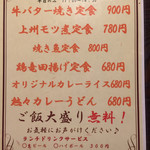 牛バター焼き定食 900円
上州モツ煮定食 780円
焼き魚定食 800円
鶏竜田揚げ定食 680円
オリジナルカレーライス680円
熱々カレーうどん 680円
ご飯大盛り無料！
お気軽にお声がけください♪
ランチドリンクサービス